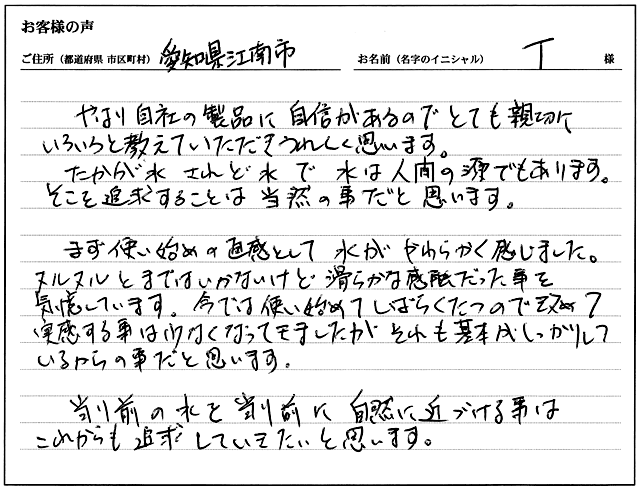 お客様の声
ご住所(都道府県 市区町村) 愛知県江南市 お名前(名字のイニシャル) T 様
やはり自社の製品に自信があるのでとても親切に
いろいろと教えていただきうれしく思います。
たかが水 されど水 で 水は人間の源でもあります。
そこを追求することは当然の事だと思います。
まず使い始めの直感として 水が やわらかく感じました。
ヌルヌルとまではいかないけど滑らかな感触だった事を
記憶しています。今では使い始めてしばらくたつので改めて
実感する事は少なくなってきましたが それも基本がしっかりして
いるからの事だと思います。
当り前の水を当り前に 自然に近づける事は
これからも追求していきたいと思います。